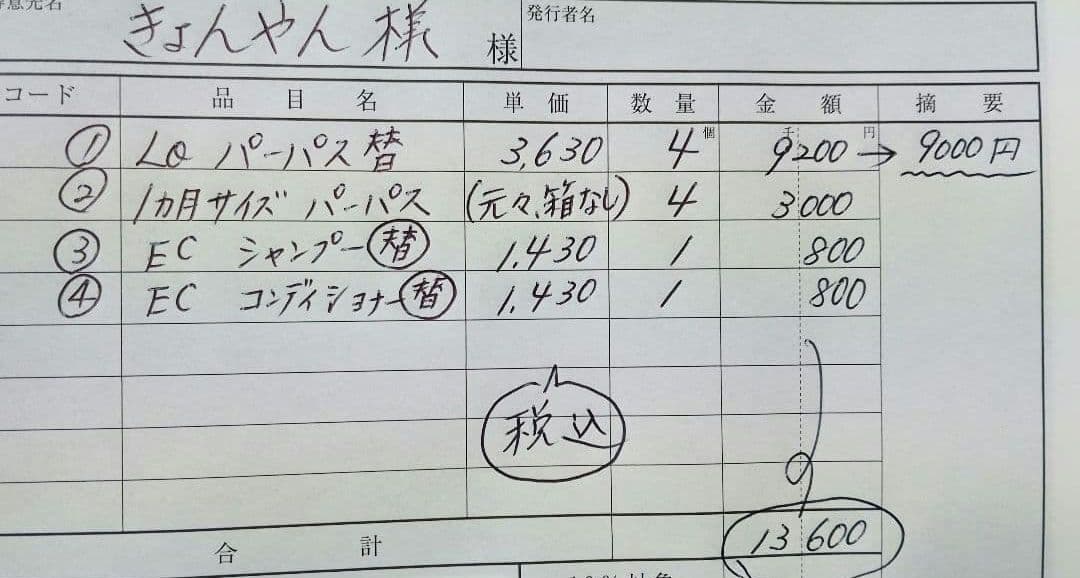 きょんやん様 様
発行者名
コード 品目名 単価 数量 金額 摘要
① LQ パーパス替 3,630 4個 9200 → 9000円
② 1カ月サイズ パーパス (元々、箱なし) 4 3000
③ EC シャンプー替 1,430 1 800
④ EC コンディショナー替 1,430 1 800
税込
合計 13600